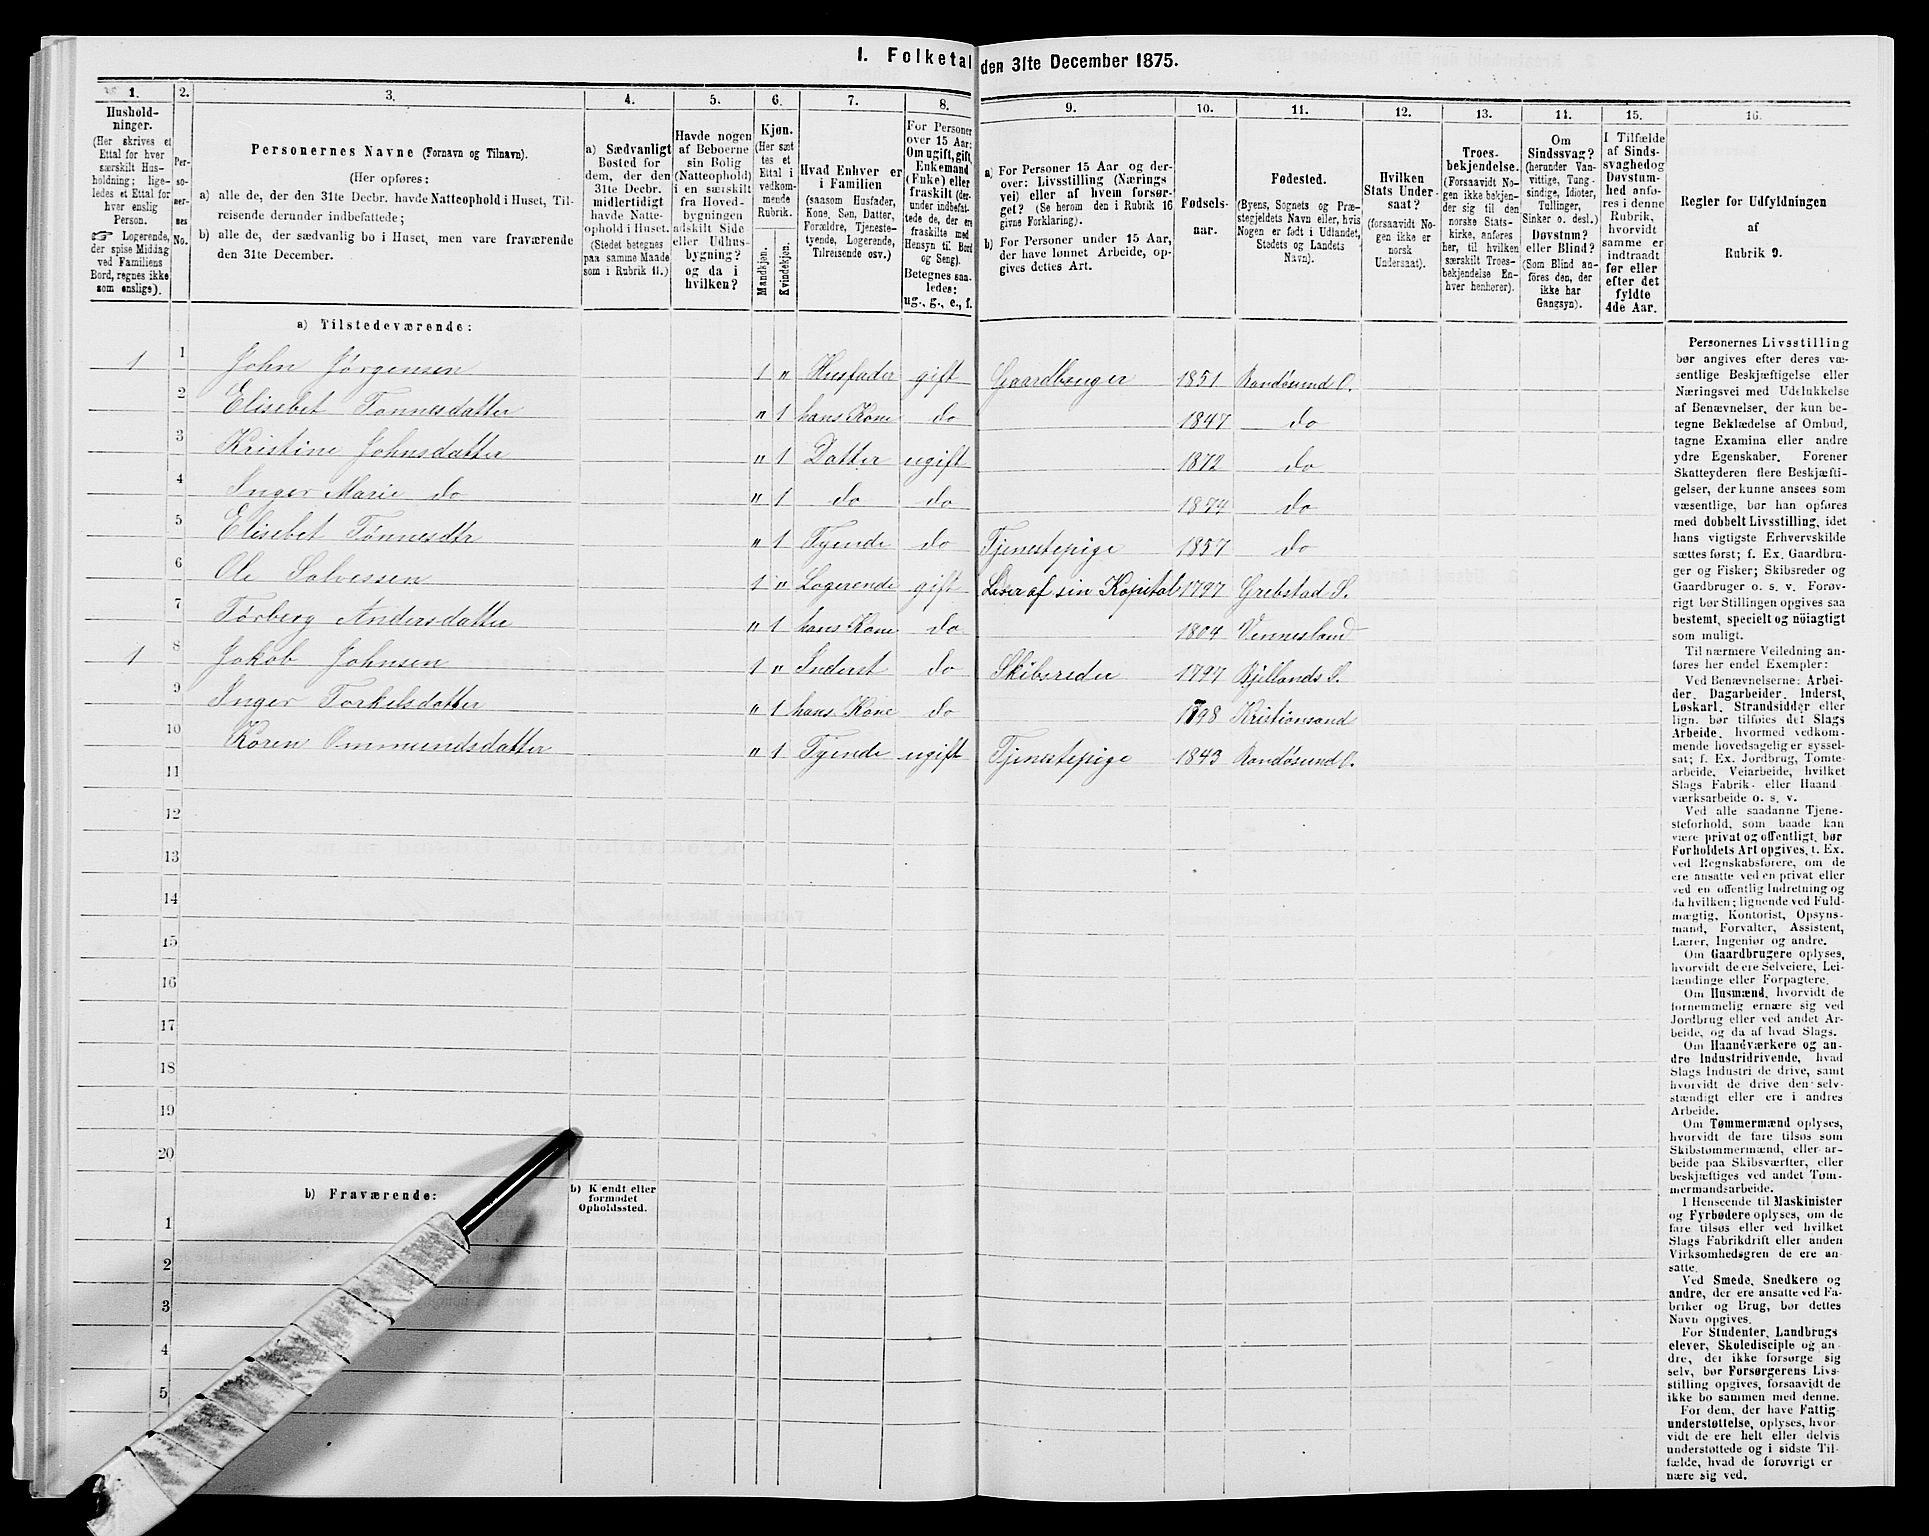 I. Folketal den 31te December 1875.
1. 2. 3. 4. 5. 6. 7. 8. 9. 10. 11. 12. 13. 14. 15. 16.
Hushold-
ninger.
(Her skrives et
Ettal for hver
særskilt Hus-
holdning; lige-
ledes et Ettal for
hver enslig
Person.
☞ Logerende,
der spise Middag
ved Familiens
Bord, regnes ikke
som enslige).
Per-
so-
ner-
nes
No.
Personernes Navne (Fornavn og Tilnavn).
(Her opføres:
a) alle de, der den 31te Decbr. havde Natteophold i Huset, Til-
reisende derunder indbefattede;
b) alle de, der sædvanlig bo i Huset, men vare fraværende
den 31te December.
a) Sædvanligt
Bosted for
dem, der den
31te Decbr.
midlertidigt
havde Natte-
ophold i Huset.
(Stedet betegnes
paa samme Maade
som i Rubrik 11.)
Havde nogen
af Beboerne
sin Bolig
(Natteophold)
i en særskilt
fra Hoved-
bygningen
adskilt Side
eller Udhus-
bygning?
og da i
hvilken?
Kjøn.
(Her sæt-
tes et
Ettal i
vedkom-
mende
Rubrik.
Mandkjøn.
Kvindekjøn.
Hvad Enhver er
i Familien
(saasom Husfader,
Kone, Søn, Datter,
Forældre, Tjeneste-
tyende, Logerende,
Tilreisende osv.)
For Personer
over 15 Aar:
Om ugift, gift,
Enkemand
(Enke) eller
fraskilt (der-
under indbefat-
tede de, der ere
fraskilte med
Hensyn til Bord
og Seng).
Betegnes saa-
ledes:
ug., g., e., f.
a) For Personer 15 Aar og der-
over: Livsstilling (Nærings-
vei) eller af hvem forsør-
get? (Se herom den i Rubrik 16
givne Forklaring).
b) For Personer under 15 Aar,
der have lønnet Arbeide, op-
gives dettes Art.
Fødsels-
aar.
Fødested.
(Byens, Sognets og Præ-
stegjeldets Navn eller, hvis
Nogen er født i Udlandet,
Stedets og Landets
Navn).
Hvilken
Stats Under-
saat?
(forsaavidt No-
gen ikke er
norsk
Undersaat).
Troes-
bekjendelse.
(Forsaavidt No-
gen ikke bekjen-
der sig til den
norske Stats-
kirke, anføres
her, til hvilken
særskilt Troes-
bekjendelse En-
hver henhører).
Om
Sindssvag?
(herunder Van-
vittige, Tung-
sindige, Idioter,
Tullinger,
Sinker o. desl.)
Døvstum?
eller Blind?
(Som Blind an-
föres den, der
ikke har
Gangsyn).
I Tilfælde
af Sinds-
svaghed og
Døvstum-
hed anfø-
res i denne
Rubrik,
hvorvidt
samme er
indtraadt
før eller
efter det
fyldte
4de Aar.
Regler for Udfyldningen
af
Rubrik 9.
a) Tilstedeværende:
1 1 John Jørgensen 1 " Husfader gift Gaardbruger 1851 Randøsund O.
2 Elisebet Tønnesdatter " 1 hans Kone do 1847 do
3 Kristine Johnsdatter " 1 Datter ugift 1872 do
4 Inger Marie do " 1 do do 1874 do
5 Elisebet Tønnesdtr " 1 Tyende do Tjenestepige 1857 do
6 Ole Salvessen 1 " Logerende gift Lever af sin Kapital 1797 Grebstad S.
7 Tørberg Andersdatter " 1 hans Kone do 1804 Vennesland
1 8 Jakob Johnsen 1 " Inderst do Skibsreder 1797 Bjellands S.
9 Inger Torkelsdatter " 1 hans Kone do 1798 Kristiansand
10 Karen Ommundsdatter " 1 Tyende ugift Tjenestepige 1843 Randøsund O.
11
12
13
14
15
16
17
18
19
20
b) Fraværende:
b) Kjendt eller
formodet
Opholdssted.
1
2
3
4
5
Personernes Livsstilling
bør angives efter deres væ-
sentlige Beskjæftigelse eller
Næringsvei med Udelukkelse
af Benævnelser, der kun be-
tegne Beklædelse af Ombud,
tagne Examina eller andre
ydre Egenskaber. Forener
Skatteyderen flere Beskjæfti-
gelser, der kunne ansees som
væsentlige, bør han opføres
med dobbelt Livsstilling, idet
hans vigtigste Erhvervskilde
sættes først; f. Ex. Gaardbru-
ger og Fisker; Skibsreder og
Gaardbruger o. s. v. Forøv-
rigt bør Stillingen opgives saa
bestemt, specielt og nöiagtigt
som muligt.
Til nærmere Veiledning an-
føres her endel Exempler:
Ved Benævnelserne: Arbei-
der, Dagarbeider, Inderst,
Løskarl, Strandsidder eller
lign. bør tilføies det Slags
Arbeide, hvormed vedkom-
mende hovedsagelig er syssel-
sat; f. Ex. Jordbrug, Tomte-
arbeide, Veiarbeide, hvilket
Slags Fabrik- eller Haand-
værksarbeide o. s. v.
Ved alle saadanne Tjene-
steforhold, som baade kan
være privat og offentligt, bør
Forholdets Art opgives, f. Ex.
ved Regnskabsførere, om de
ere ansatte ved en privat eller
ved en offentlig Indretning og
da hvilken; lignende ved Fuld-
mægtig, Kontorist, Opsyns-
mand, Forvalter, Assistent,
Lærer, Ingeniør og andre.
Om Gaardbrugere oplyses,
hvorvidt de ere Selveiere, Lei-
lændinge eller Forpagtere.
Om Husmænd, hvorvidt de
fornemmelig ernære sig ved
Jordbrug eller ved andet Ar-
beide, og da af hvad Slags.
Om Haandværkere og an-
dre Industridrivende, hvad
Slags Industri de drive, samt
hvorvidt de drive den selv-
stændigt eller ere i andres
Arbeide.
Om Tømmermænd oplyses,
hvorvidt de fare tilsøs som
Skibstømmermænd, eller ar-
beide paa Skibsværfter, eller
beskjæftiges ved andet Tøm-
mermandsarbeide.
I Henseende til Maskinister
og Fyrbødere oplyses, om de
fare tilsøs eller ved hvilket
Slags Fabrikdrift eller anden
Virksomhedsgren de ere an-
satte.
Ved Smede, Snedkere og
andre, der ere ansatte ved Fa-
briker og Brug, bør dettes
Navn opgives.
For Studenter, Landbrugs-
elever, Skoledisciple og an-
dre, der ikke forsørge sig
selv, bør Forsørgerens Livs-
stilling opgives, forsaavidt de
ikke bo sammen med denne.
For dem, der have Fattig-
understøttelse, oplyses, hvor-
vidt de ere helt eller delvis
understøttede og i sidste Til-
fælde, hvad de forøvrigt er-
nære sig ved.